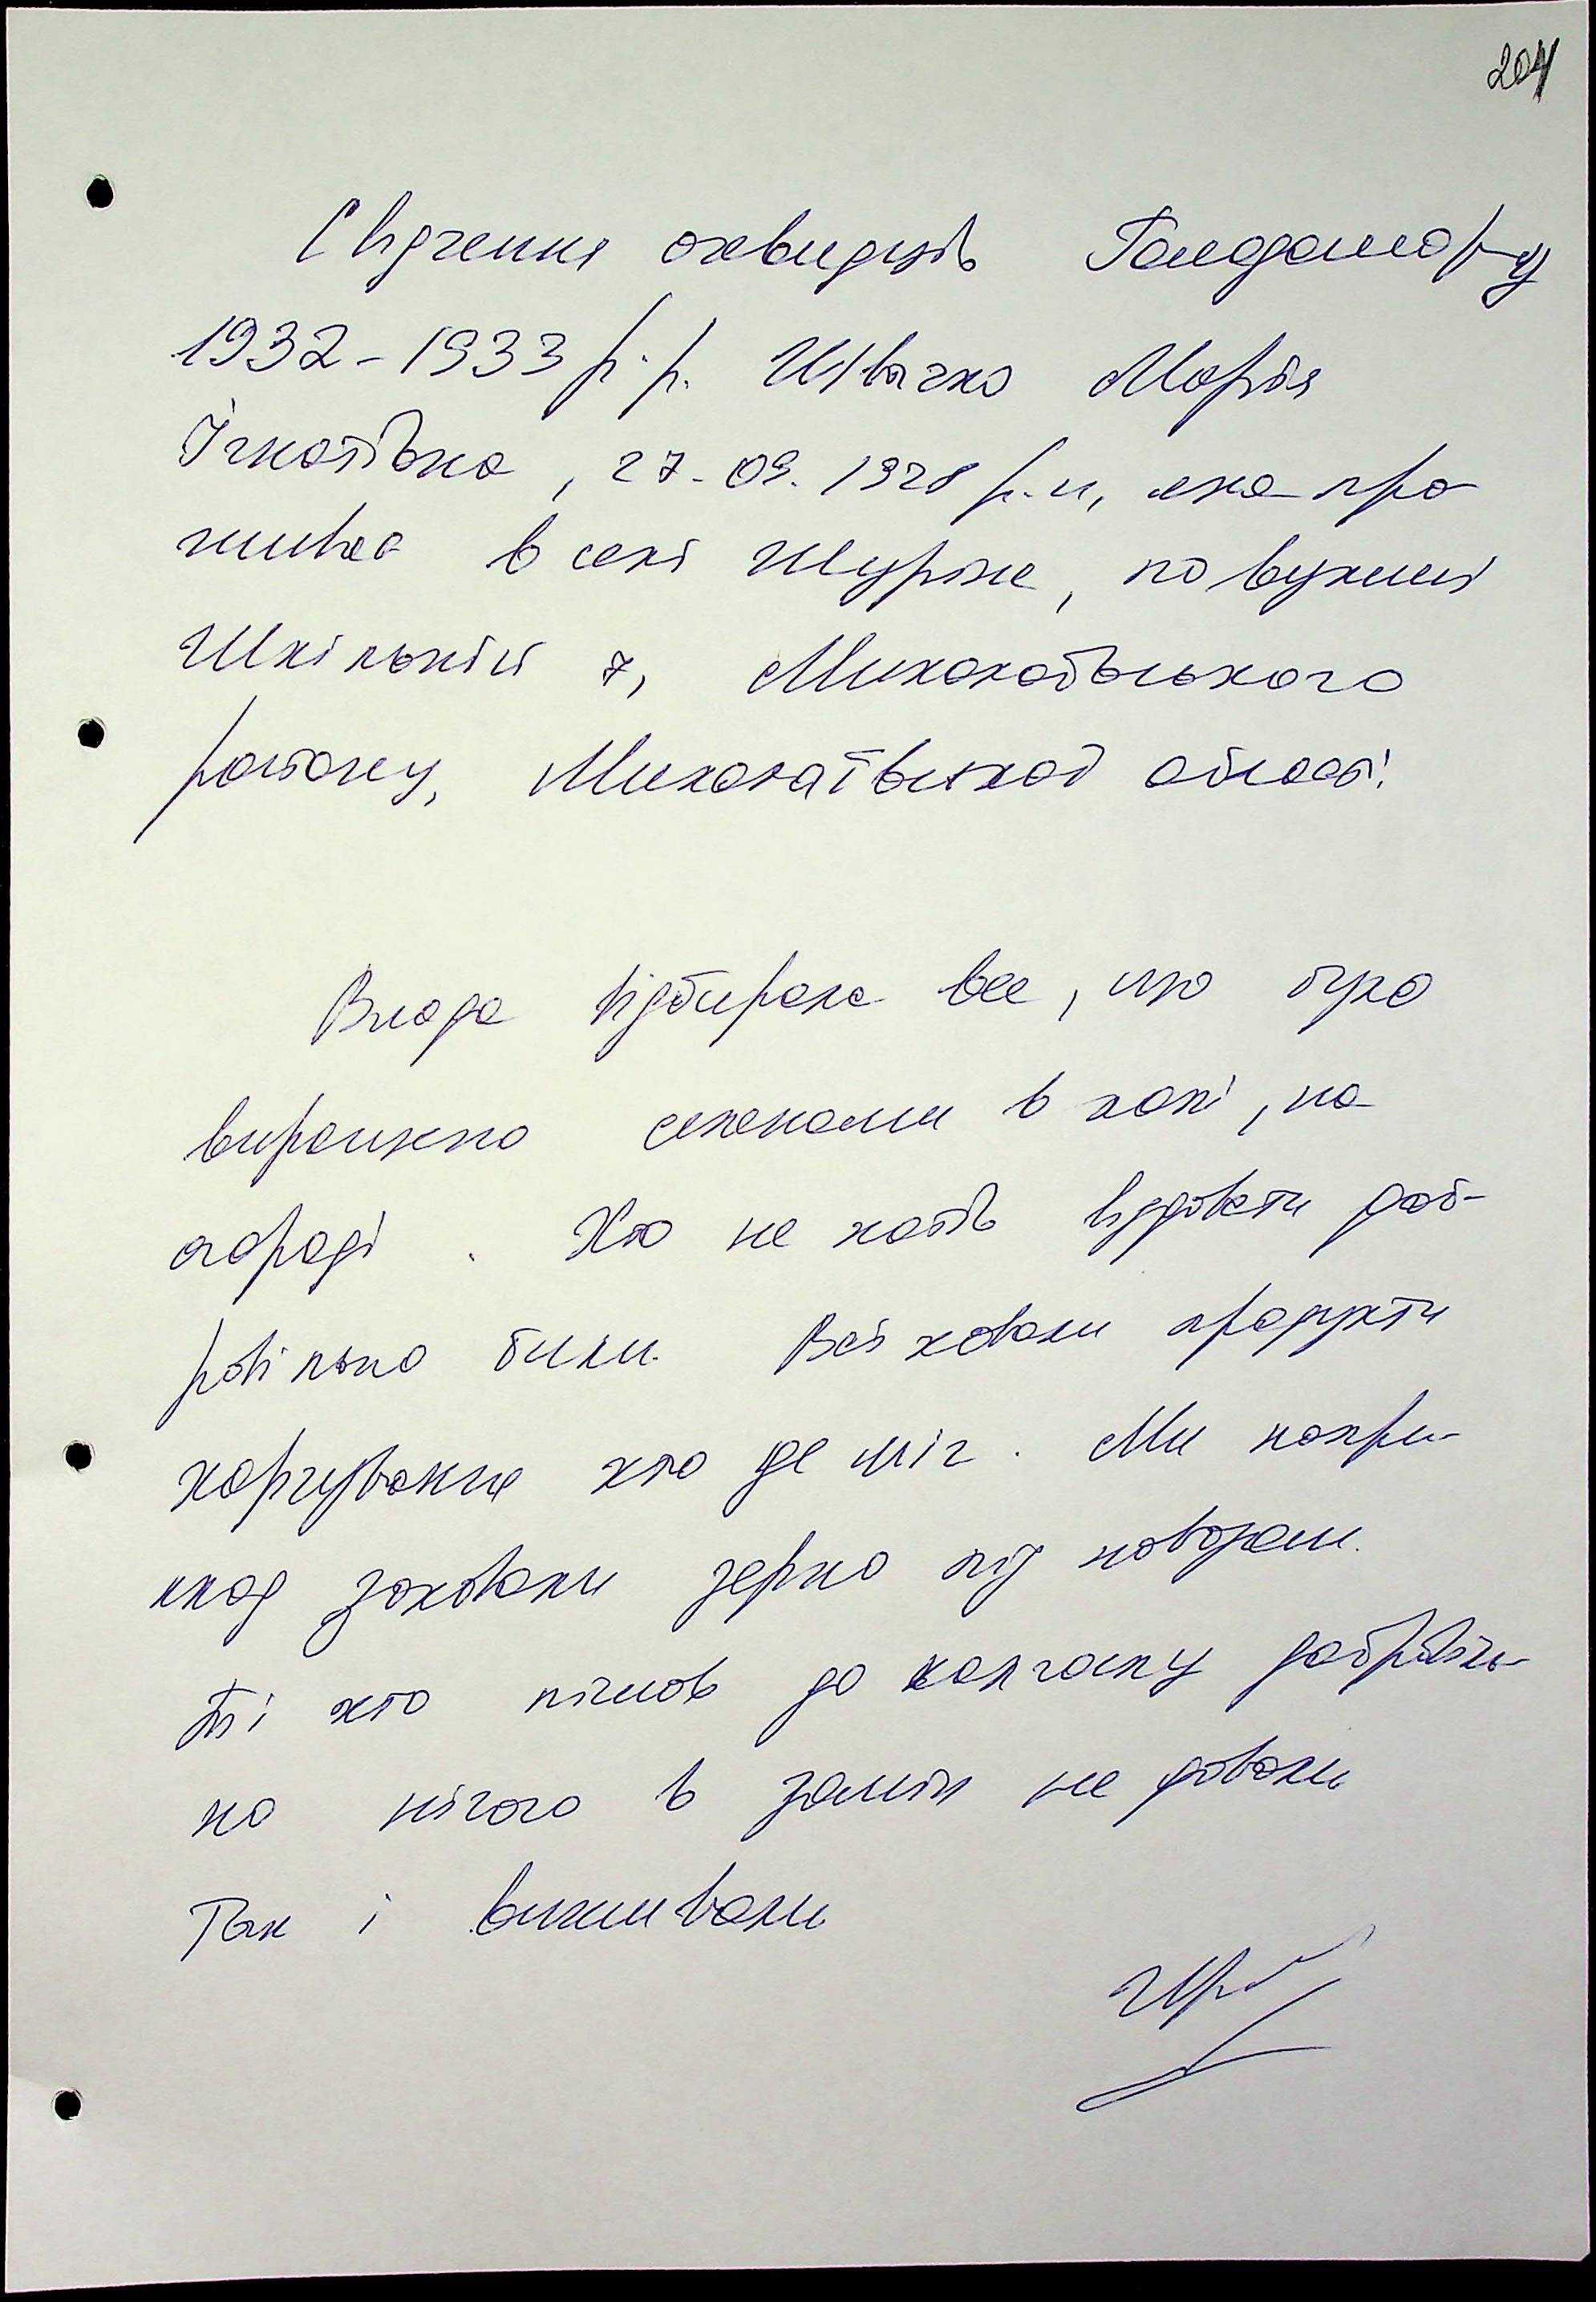 204
Свідчення очевидців Голодомору
1932-1933 р.р. Швачко Марія
Ігнатівна, 27.09.1928 р.н, яка про
живає в селі Шуріне, по вулиці
Шкільній 7, Миколаївського
району, Миколаївської області.
Влада відбирала все, що було
вирощено селянами в полі, на
огороді. Хто не хотів віддавати доб-
ровільно били. Всі ховали продукти
харчування хто де міг. Ми наприк-
лад заховали зерно під
Ті хто пішов до колгоспу добровіль-
но нічого в замін не давали
Так і виживали